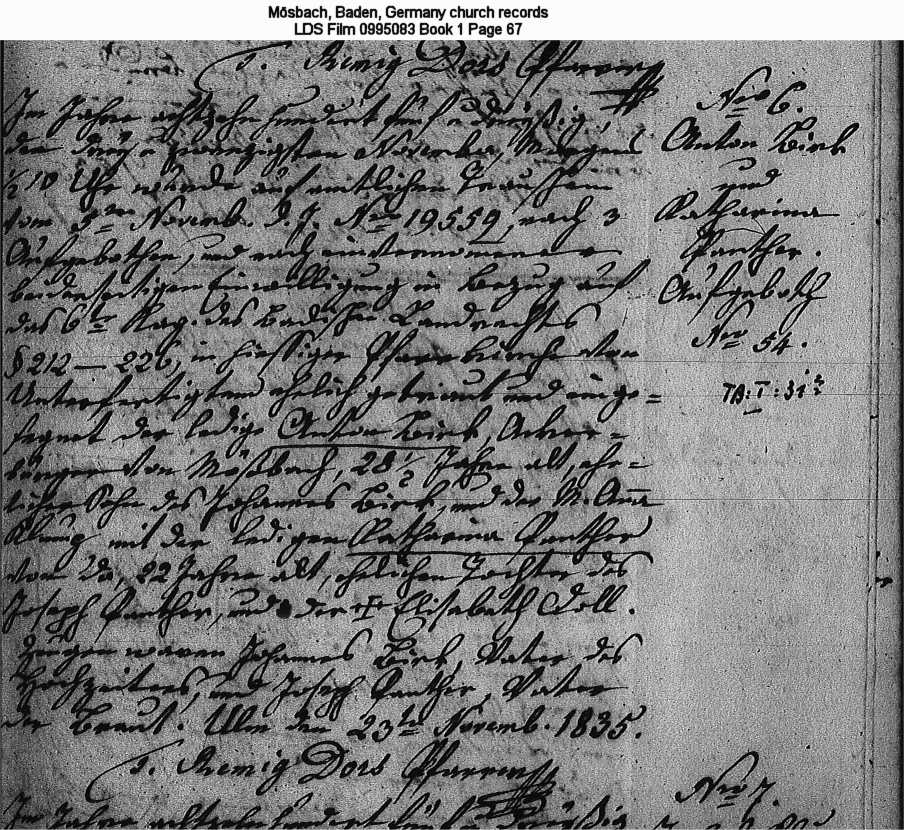 Mösbach, Baden, Germany church records
LDS Film 0995083 Book 1 Page 67
T. Remig Dors Pfarrer
Im Jahre achtzehn hundert fünf u. dreißig,
den drey u. zwanzigsten November, Morgens
½ 10 Uhr wurde auf amtlichen Trauschein
vom 9ten Novemb. d. J. Nro 19559, nach 3
Aufgebothen, und nach
beiderseitigen Einwilligung in Bezug auf
das 6te Kap. des badischen Landrechts
§ 212 — 226, in hiesiger Pfarrkirche von
Unterfertigtem ehelich getraut und einge=
segnet der ledige Anton Birk, Acker=
bürger von Mößbach, 28½ Jahre alt, ehe=
licher Sohn des Johannes Birk, und der M. Anna
Klumpp mit der ledigen Katharina Panther
von da, 22 Jahre alt, ehelichen Tochter des
Joseph Panther, und der Elisabeth Doll.
Zeugen waren Johannes Birk, Vater des
Hochzeiters, und Joseph Panther, Vater
der Braut. Ulm den 23ten Novemb. 1835.
T. Remig Dors Pfarrer
Im Jahre achtzehnhundert fünf u. dreißig
Nro 6.
Anton Birk
und
Katharina
Panther.
Aufgeboth
Nro 54.
Nro 7.